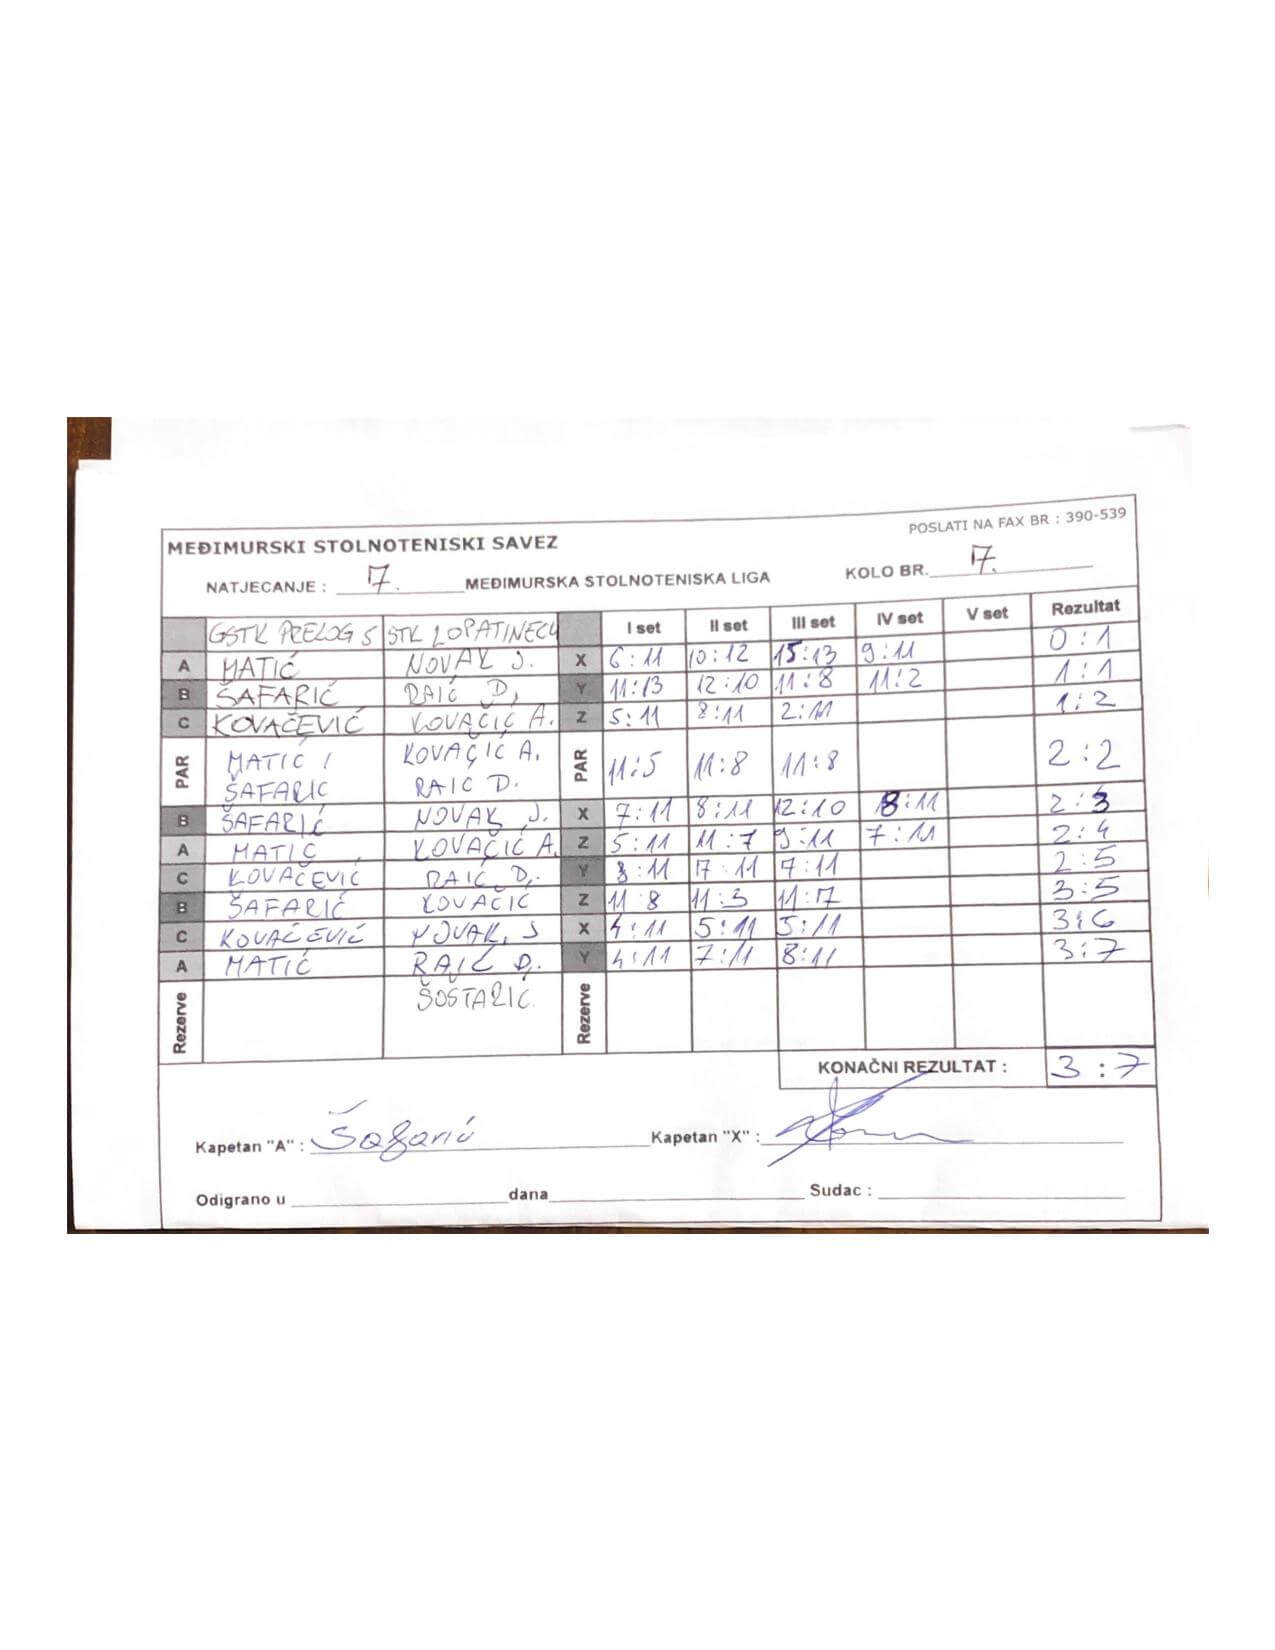 POSLATI NA FAX BR : 390-539
MEĐIMURSKI STOLNOTENISKI SAVEZ
NATJECANJE : 7. MEĐIMURSKA STOLNOTENISKA LIGA KOLO BR. 7.
GSTK PRELOG 5 STK LOPATINEC 4 I set II set III set IV set V set Rezultat
A MATIĆ NOVAK J. X 6:11 10:12 15:13 9:11 0:1
B ŠAFARIĆ RAIĆ D. Y 11:13 12:10 11:8 11:2 1:1
C KOVAČEVIĆ KOVAČIĆ A. Z 5:11 8:11 2:11 1:2
PAR MATIĆ / KOVAČIĆ A. PAR 11:5 11:8 11:8 2:2
ŠAFARIC RAIĆ D.
B ŠAFARIĆ NOVAK J. X 7:11 8:11 12:10 8:11 2:3
A MATIĆ KOVAČIĆ A. Z 5:11 11:7 9:11 7:11 2:4
C KOVAČEVIĆ RAIĆ D. Y 8:11 7:11 2:5
B ŠAFARIĆ KOVAČIĆ Z 11:8 11:3 11:7 3:5
C KOVAČEVIĆ NOVAK, J X 4:11 5:11 5:11 3:6
A MATIĆ RAIĆ D. Y 4:11 7:11 8:11 3:7
Rezerve ŠOŠTARIĆ. Rezerve
KONAČNI REZULTAT : 3:7
Kapetan "A" : Šafarić Kapetan "X" :
Odigrano u dana Sudac :